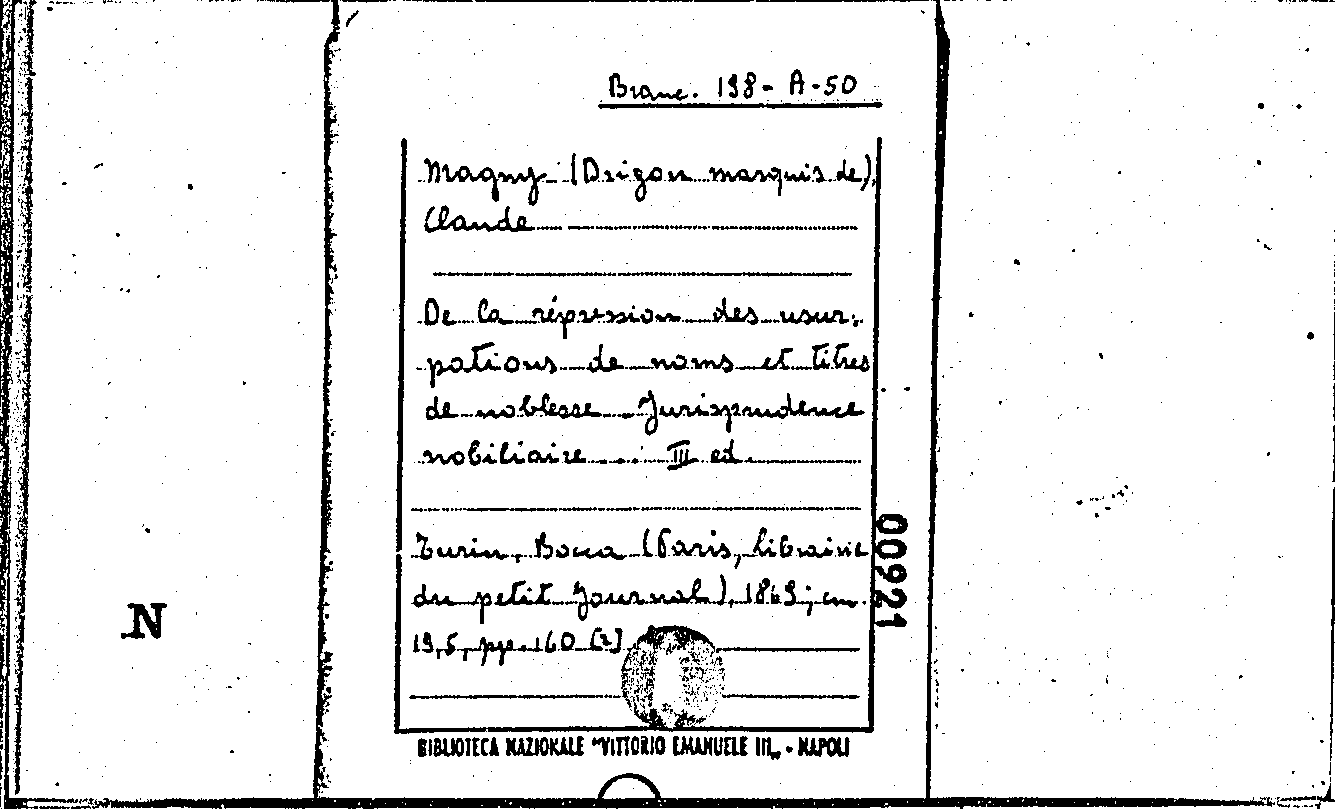 Branc. 198 - A - 50
Magny (Drigon marquis de),
Claude
De la répression des usur-
pations de noms et titres
de noblesse. Jurisprudence
nobiliaire... III ed.
Turin, Bocca (Paris, librairie
du petit Journal), 1869; cm.
19,5, pp. 160 [2]
00921
N
BIBLIOTECA NAZIONALE "VITTORIO EMANUELE III„ - NAPOLI